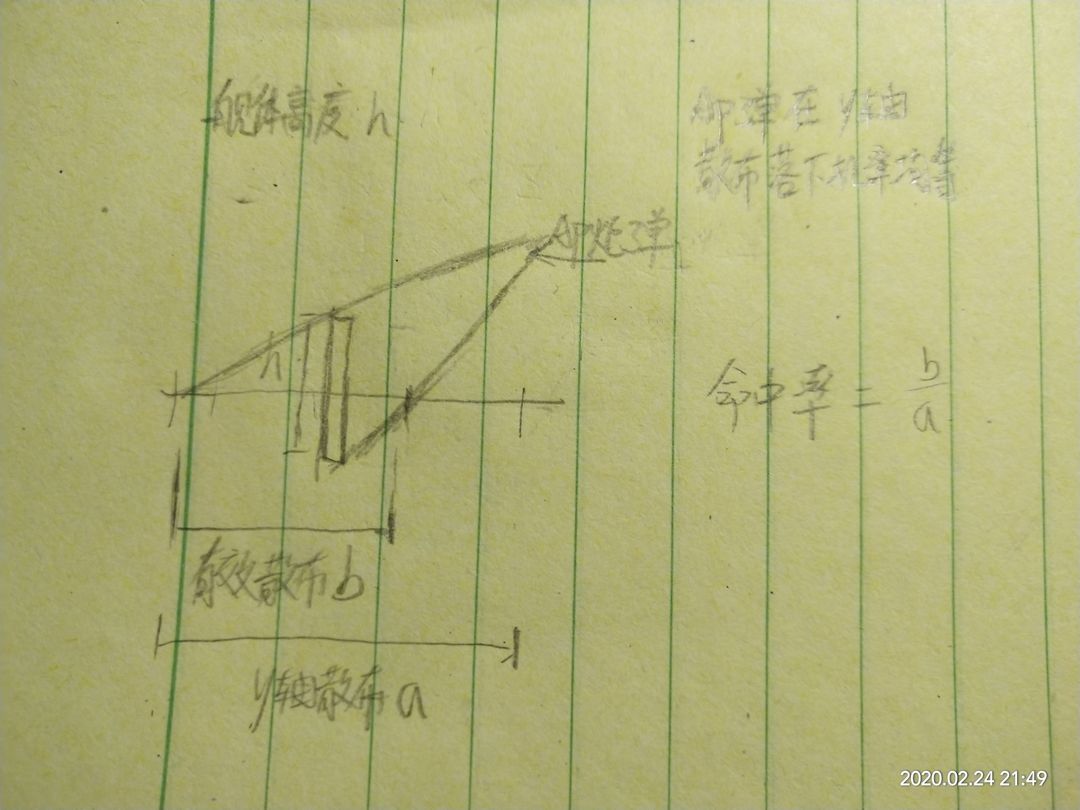 舰体高度 h
AP弹在 y轴
散布落下机率均等
AP炮弹
h
命中率 = b/a
有效散布 b
y轴散布 a
2020.02.24 21:49